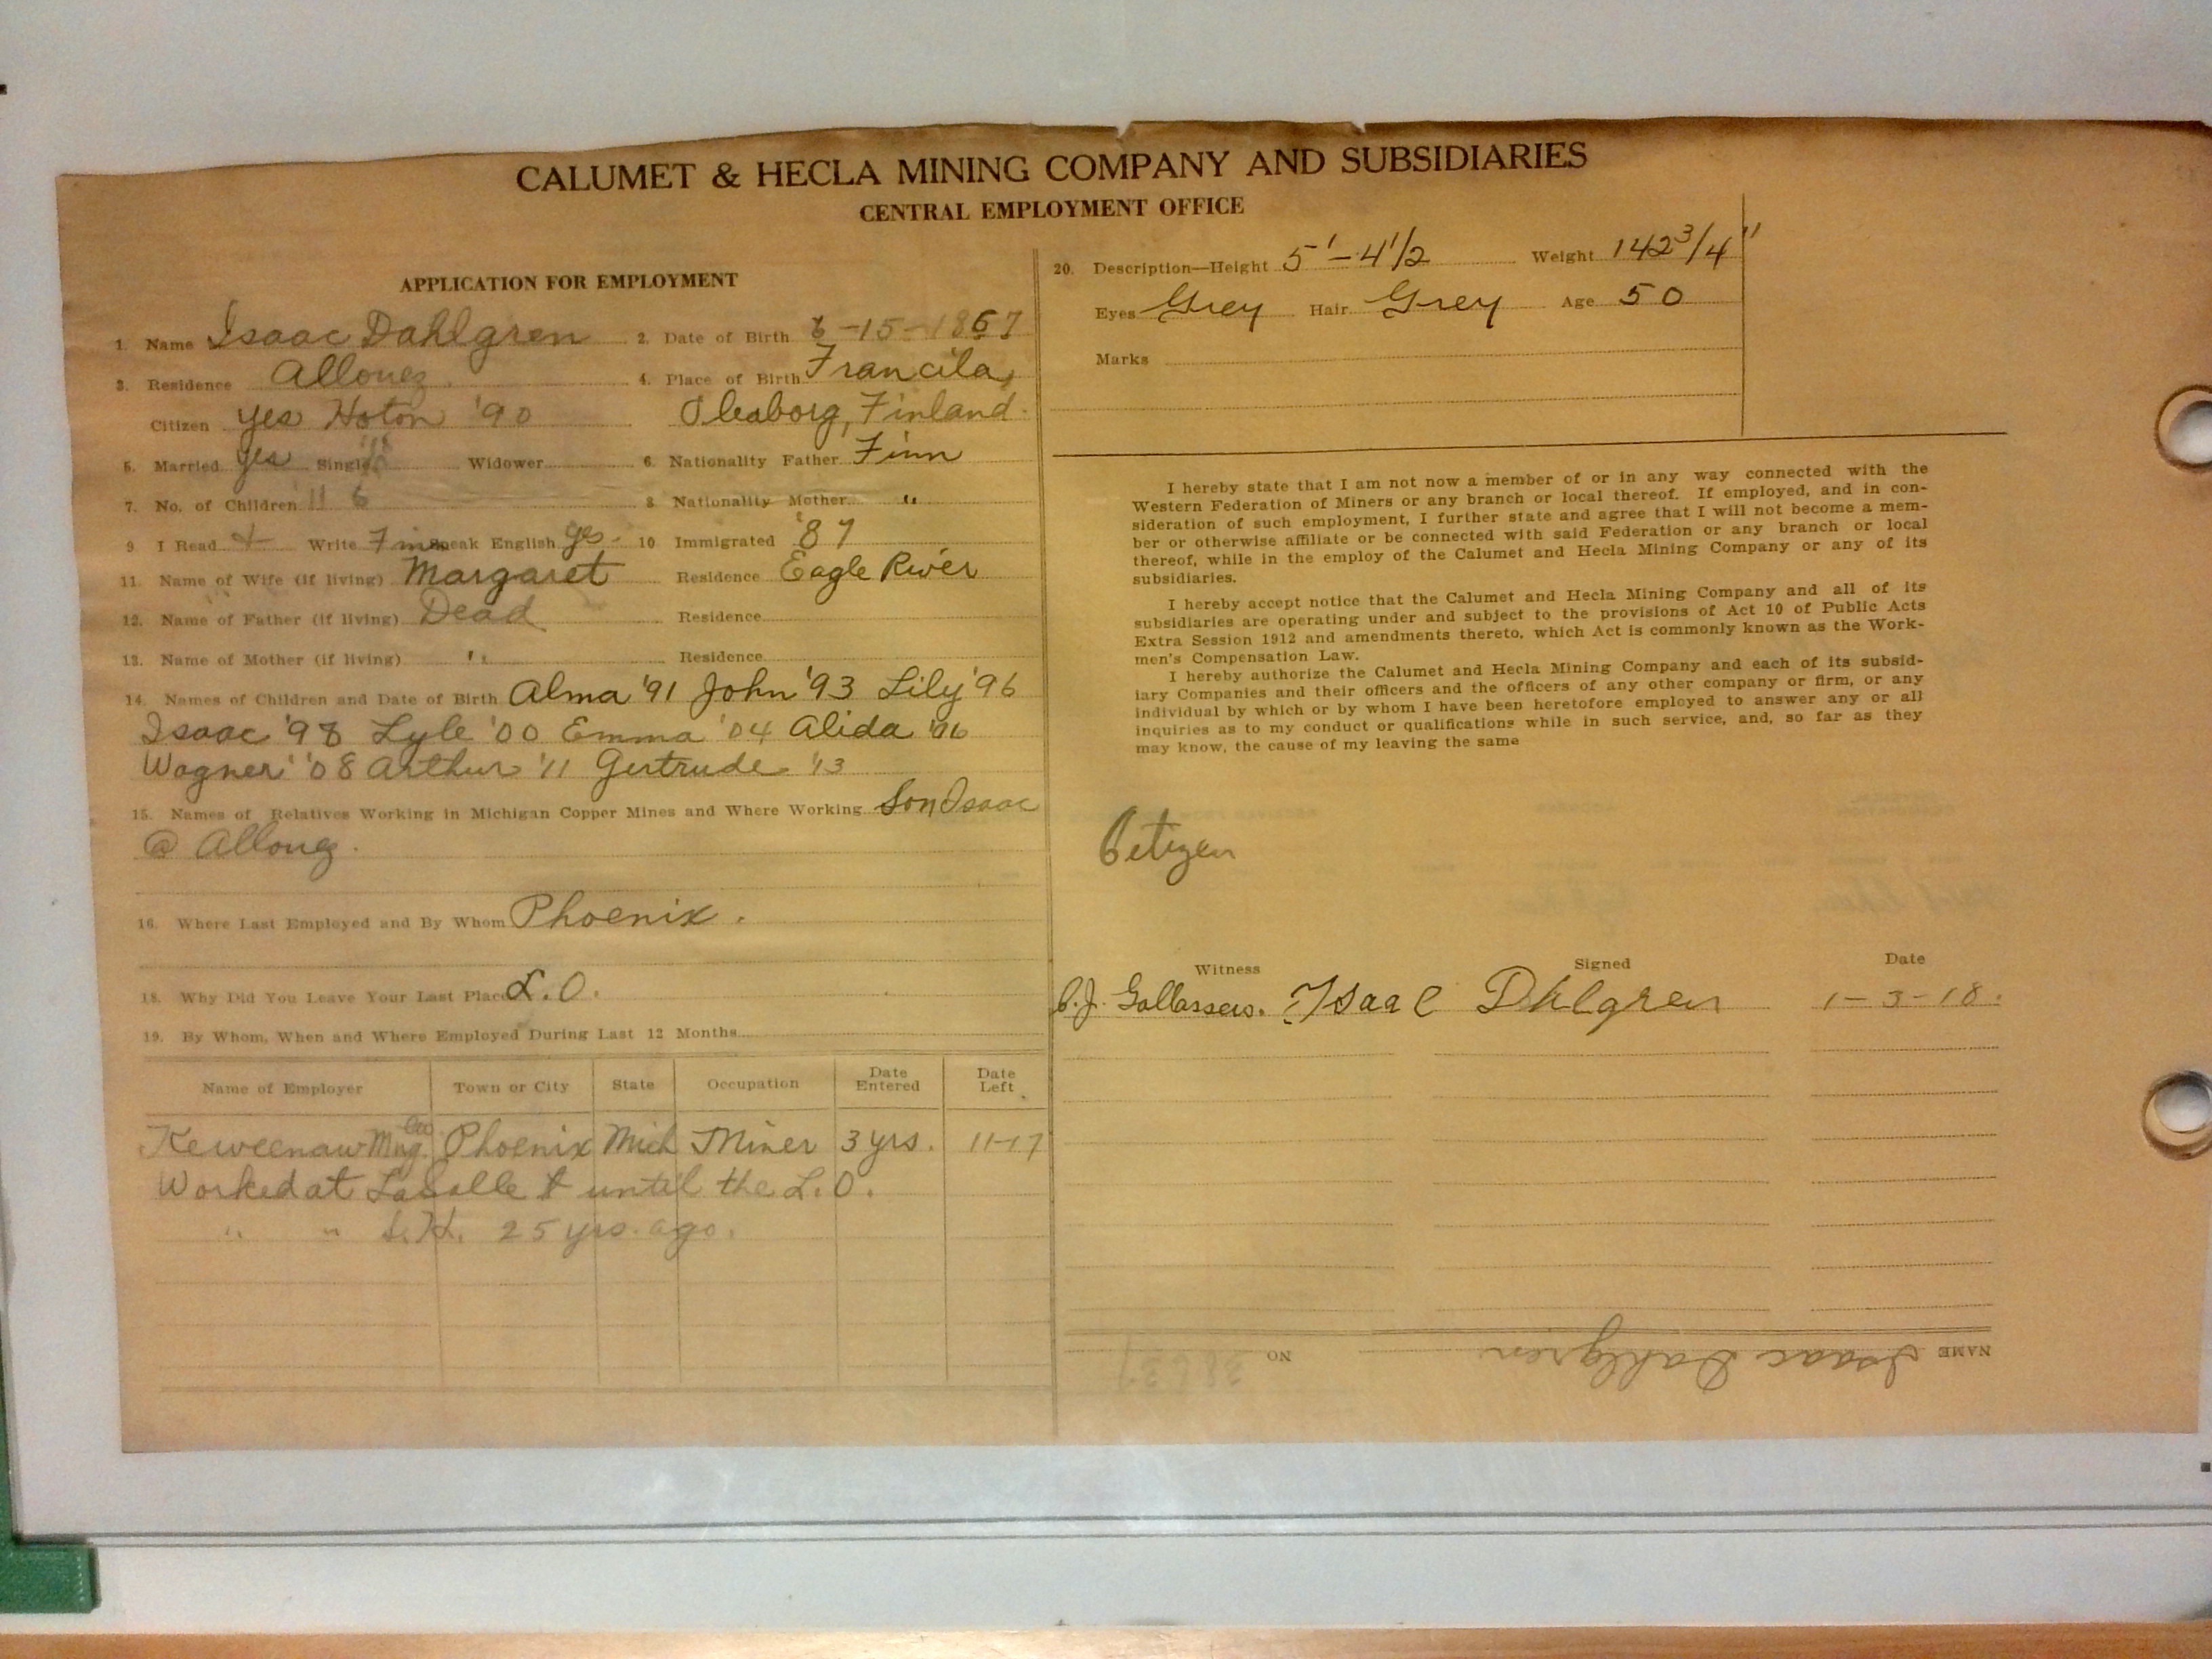 CALUMET & HECLA MINING COMPANY AND SUBSIDIARIES
CENTRAL EMPLOYMENT OFFICE
APPLICATION FOR EMPLOYMENT
1. Name Isaac Dahlgren 2. Date of Birth 6-15-1867
3. Residence Allouez 4. Place of Birth Francila,
Citizen yes Hoton '90 Oleaborg, Finland
5. Married yes Single Widower 6. Nationality Father Finn
7. No. of Children 11 6 8 Nationality Mother "
9 I Read + Write Finn Speak English yes. 10 Immigrated '87
11. Name of Wife (if living) Margaret Residence Eagle River
12. Name of Father (if living) Dead Residence
13. Name of Mother (if living) " Residence
14. Names of Children and Date of Birth Alma '91 John '93 Lily '96
Isaac '98 Lyle '00 Emma '04 Alida '06
Wagner '08 Arthur '11 Gertrude '13
15. Names of Relatives Working in Michigan Copper Mines and Where Working Son Isaac
@ Allouez.
16. Where Last Employed and By Whom Phoenix.
18. Why Did You Leave Your Last Place L.O.
19. By Whom, When and Where Employed During Last 12 Months
Name of Employer Town or City State Occupation Date Entered Date Left
Keweenaw Mng. Co. Phoenix Mich Miner 3 yrs. 11-17
Worked at LaSalle until the L.O.
" " 25 yrs. ago.
20. Description—Height 5'-4 1/2 Weight 142 3/4 "
Eyes Grey Hair Grey Age 50
Marks
I hereby state that I am not now a member of or in any way connected with the
Western Federation of Miners or any branch or local thereof. If employed, and in con-
sideration of such employment, I further state and agree that I will not become a mem-
ber or otherwise affiliate or be connected with said Federation or any branch or local
thereof, while in the employ of the Calumet and Hecla Mining Company or any of its
subsidiaries.
I hereby accept notice that the Calumet and Hecla Mining Company and all of its
subsidiaries are operating under and subject to the provisions of Act 10 of Public Acts
Extra Session 1912 and amendments thereto, which Act is commonly known as the Work-
men's Compensation Law.
I hereby authorize the Calumet and Hecla Mining Company and each of its subsid-
iary Companies and their officers and the officers of any other company or firm, or any
individual by which or by whom I have been heretofore employed to answer any or all
inquiries as to my conduct or qualifications while in such service, and, so far as they
may know, the cause of my leaving the same
Citizen
Witness Signed Date
Isaac Dhlgren 1-3-18.
NAME Isaac Dahlgren NO